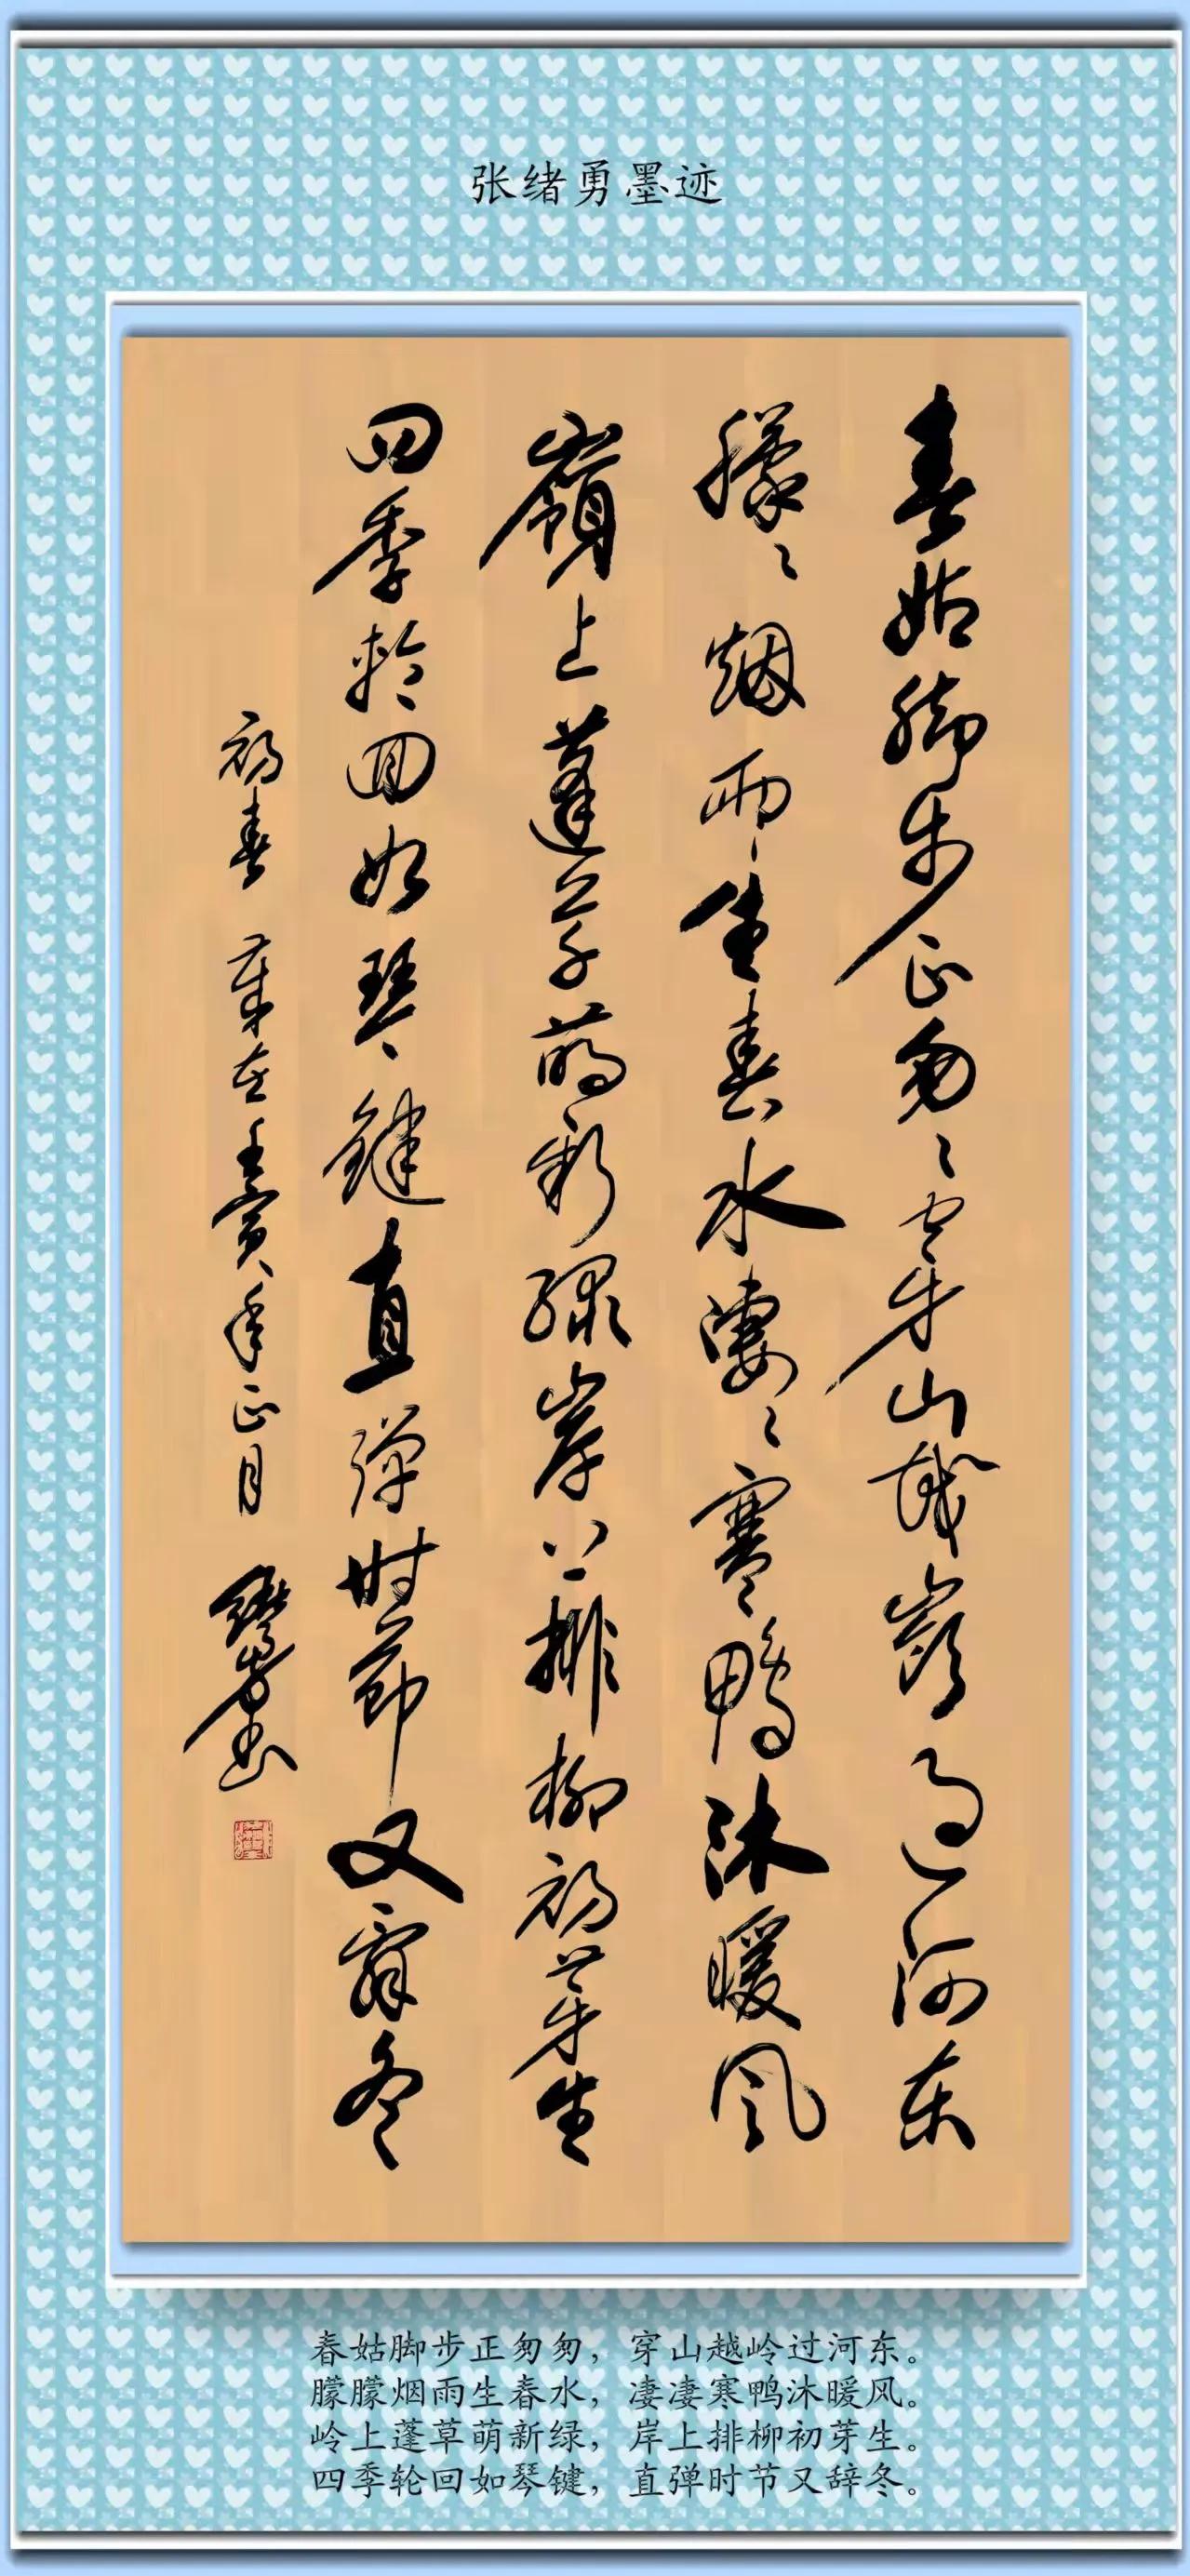 张绪勇墨迹
春姑脚步正匆々穿山越岭过河东
朦々烟雨生春水凄々寒鸭沐暖风
嶺上蓬草萌新绿岸上排柳初芽生
四季轮回如琴键直弹时节又辞冬
初春 草在壬寅年正月 绪勇书
春姑脚步正匆匆，穿山越岭过河东。
朦朦烟雨生春水，凄凄寒鸭沐暖风。
岭上蓬草萌新绿，岸上排柳初芽生。
四季轮回如琴键，直弹时节又辞冬。